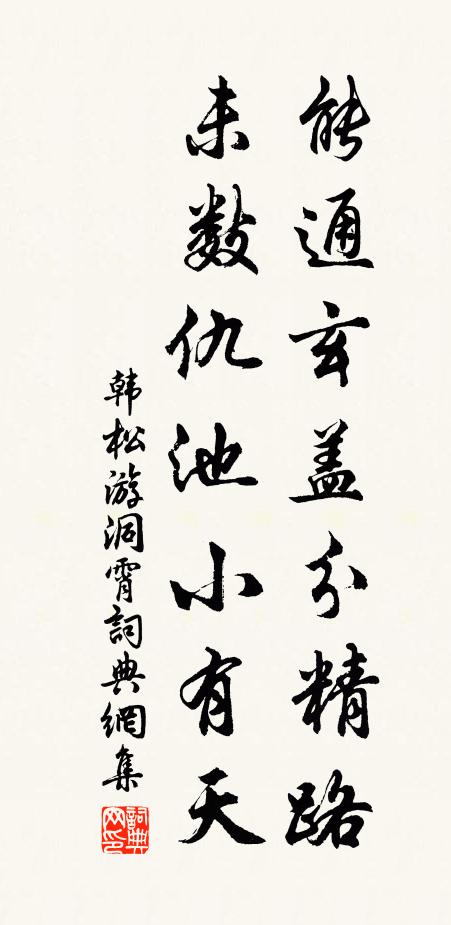 能通玄盖分精路
未数仇池小有天
韩松游洞霄詞典網集
詞典網印